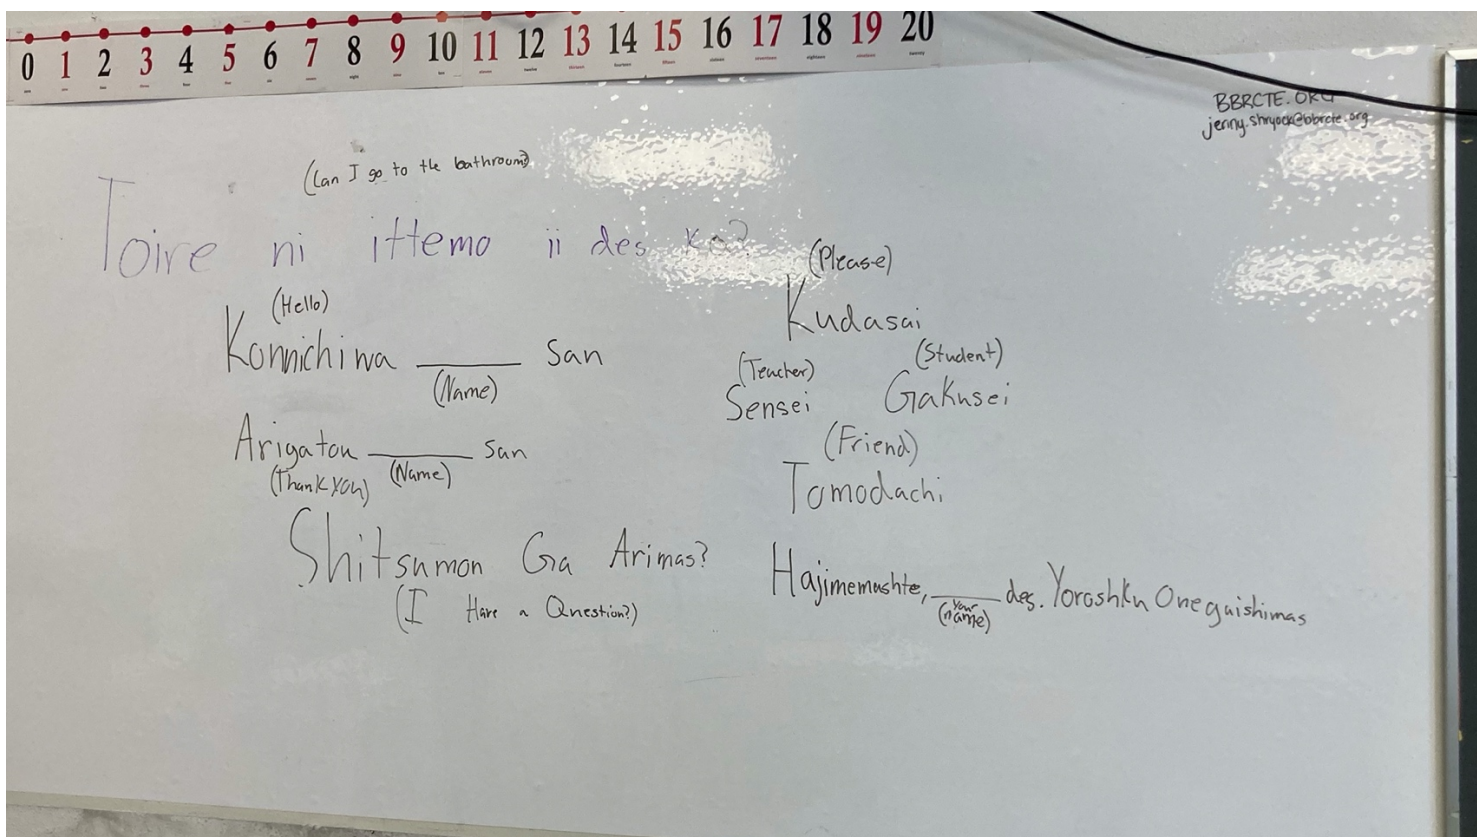 0 1 2 3 4 5 6 7 8 9 10 11 12 13 14 15 16 17 18 19 20
BBRCTE.ORG
jenny.shryock@bbrcte.org
(Can I go to the bathroom?)
Toire ni ittemo ii des ka?
(Hello)
Konnichiwa ______ San
(Name)
Arigatou ______ San
(Thank you) (Name)
Shitsumon Ga Arimas?
(I Have a Question?)
(Please)
Kudasai
(Teacher) (Student)
Sensei Gakusei
(Friend)
Tomodachi
Hajimemashte, ______ des. Yoroshku Onegaishimas
(your name)